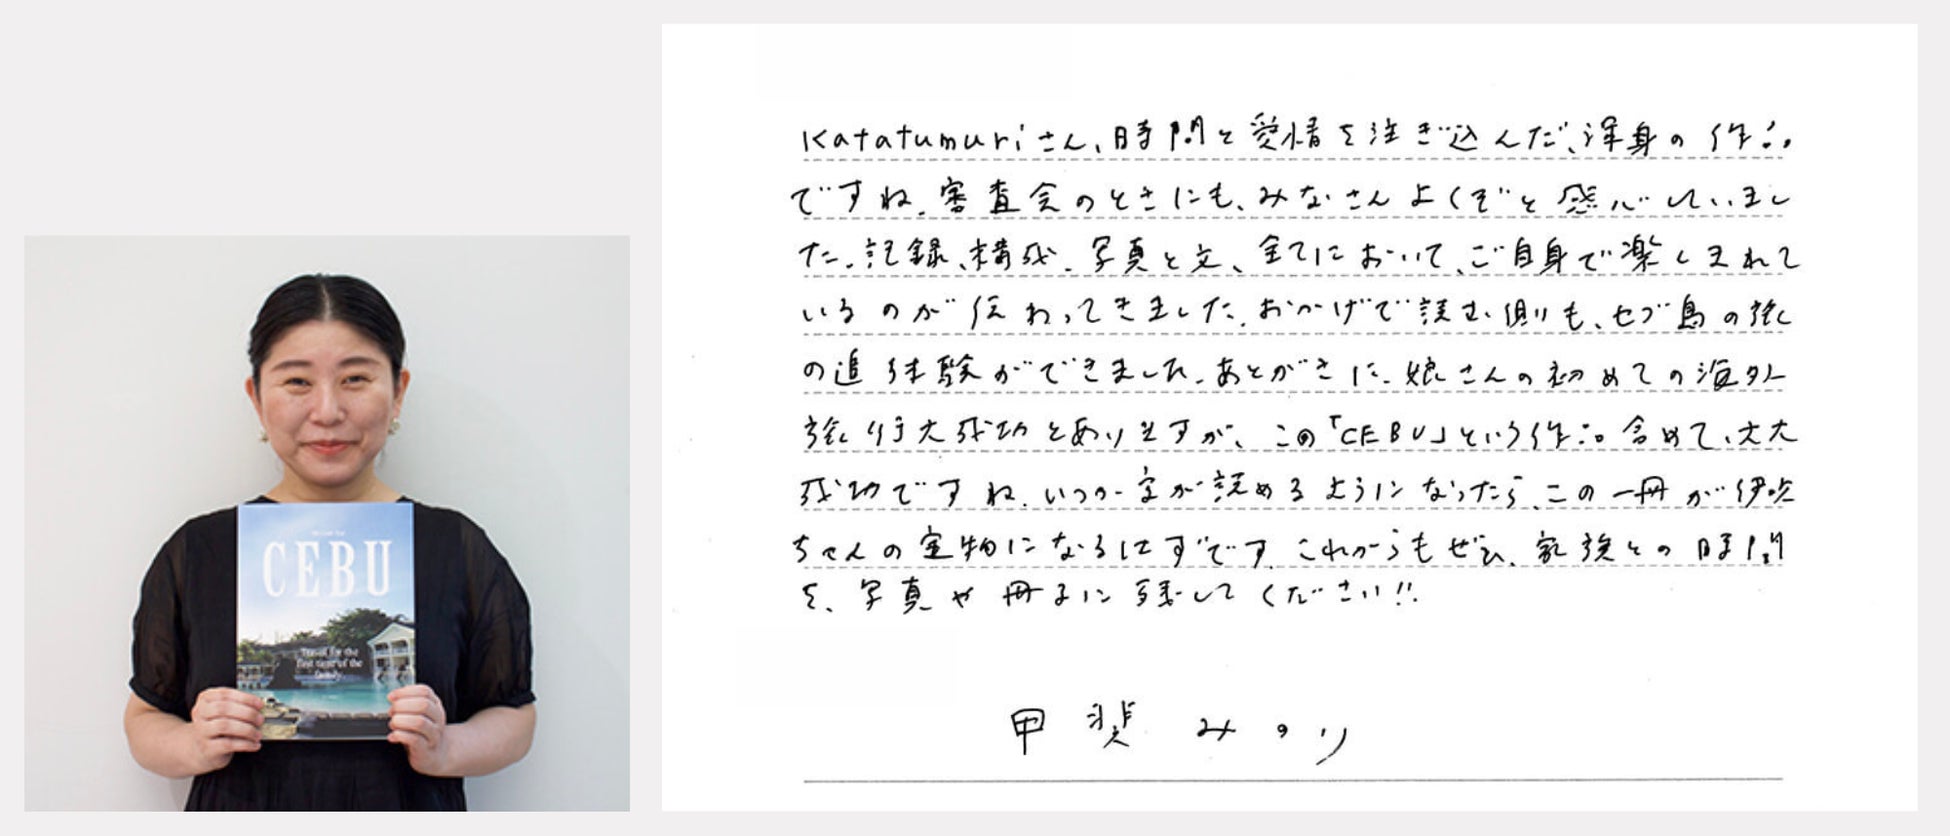 CEBU
Travel for the
first time of the
family
Katatumuriさん、時間と愛情を注ぎ込んだ、渾身の作品
ですね。審査会のときにも、みなさんよくぞと感心していまし
た。記録、構成、写真と文、全てにおいて、ご自身で楽しまれて
いるのが伝わってきました。おかげで読む側も、セブ島の旅
の追体験ができました。あとがきに、娘さんの初めての海外
旅行大成功とありますが、この「CEBU」という作品含めて、大大
成功ですね。いつか字が読めるようになったら、この一冊が伊吹
ちゃんの宝物になるはずです。これからもぜひ、家族との時間
を、写真や冊子に残してください!!
甲斐みのり